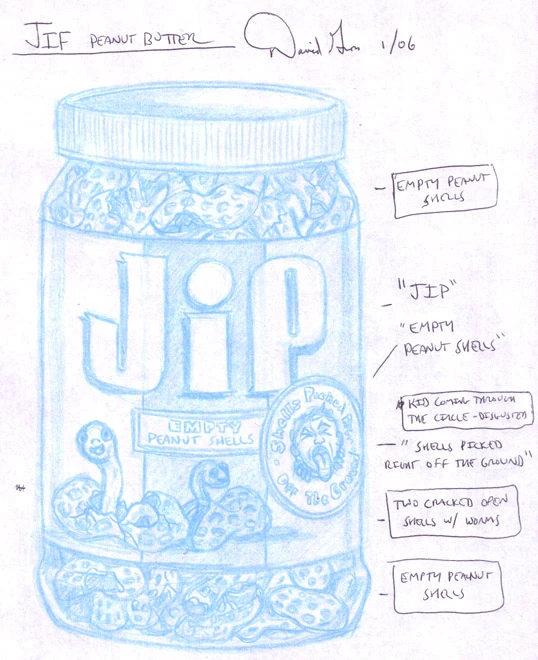 JIF PEANUT BUTTER
David 1/06
EMPTY PEANUT
SHELLS
"JIP"
"EMPTY
PEANUT SHELLS"
KID COMING THROUGH
THE CIRCLE - DISGUSTED
"SHELLS PICKED
RIGHT OFF THE GROUND"
TWO CRACKED OPEN
SHELLS W/ WORMS
EMPTY PEANUT
SHELLS
JiP
EMPTY
PEANUT SHELLS
Shells Picked
Off The Ground